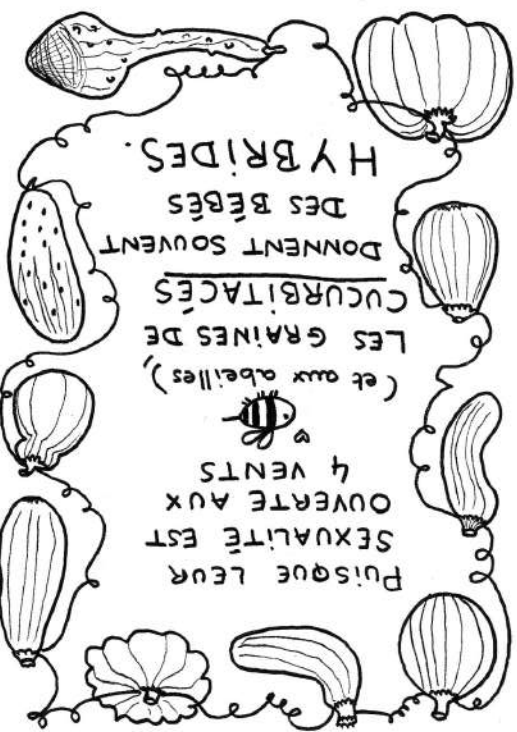 PUISQUE LEUR
SEXUALITÉ EST
OUVERTE AUX
4 VENTS
(et aux abeilles),
LES GRAINES DE
CUCURBITACÉS
DONNENT SOUVENT
DES BÉBÉS
HYBRIDES.